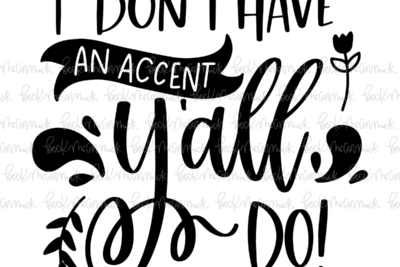 I DON'T HAVE
AN ACCENT
y'all
DO!